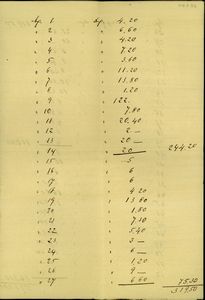 fp. 1 fp. 4.20
" 2 " 6.60
" 3 " 4.20
" 4 " 7.20
" 5 " 3.60
" 6 " 11.20
" 7 " 13.80
" 8 " 1.20
" 9 " 122.
" 10 " 7.80
" 11 " 20.40
" 12 " 2 —
" 13 " 20 —
" 14 " 20 244.20
" 15 " 5
" 16 " 6
" 17 " 6
" 18 " 4.20
" 19 " 13.80
" 20 " 1.80
" 21 " 7.10
" 22 " 5.40
" 23 " 3 —
" 24 " 6 —
" 25 " 1.20
" 26 " 9 —
" 27 " 6.60 75.30
319.50